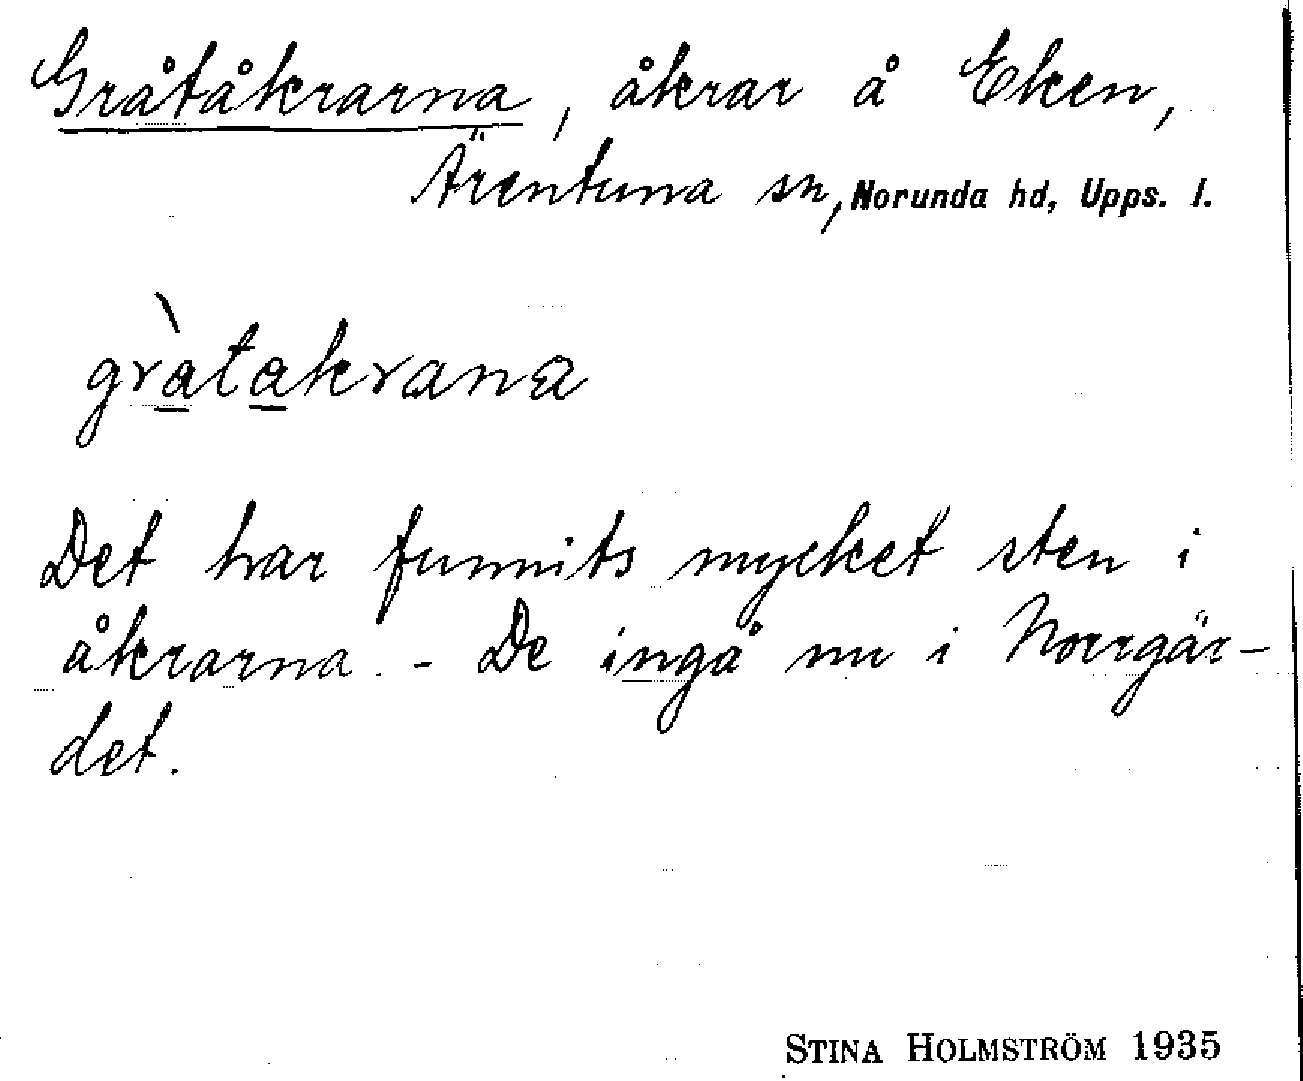 Gråtåkrarna, åkrar å Eken,
Ärentuna sn, Norunda hd, Upps. l.
gràtakrana
Det har funnits mycket sten i
åkrarna. - De ingå nu i Norrgär-
det.
STINA HOLMSTRÖM 1935